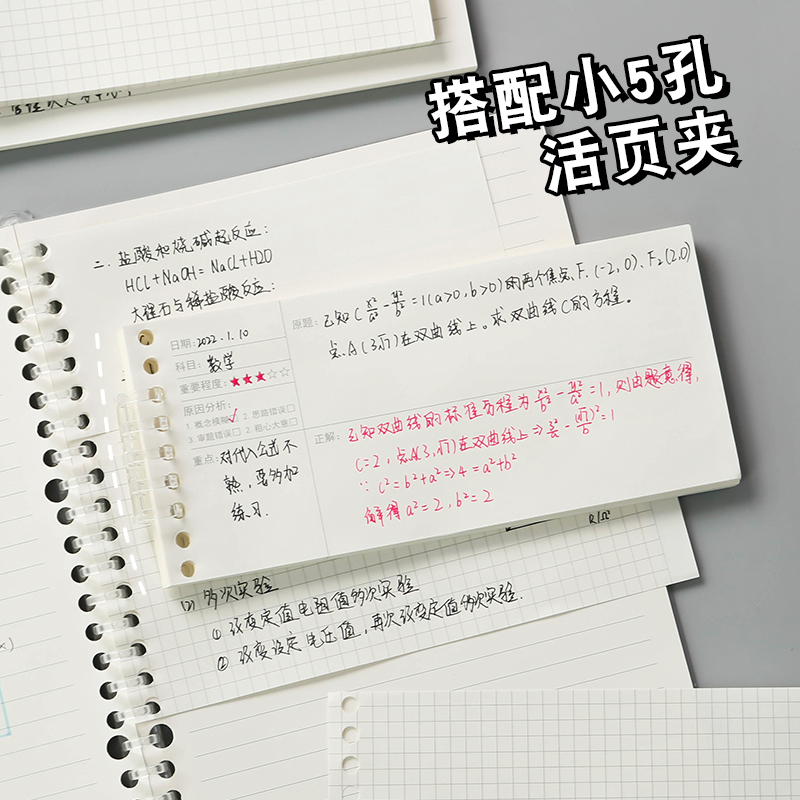 搭配小5孔
活页夹
二.盐酸和烧碱起反应:
HCl+NaOH=NaCl+H2O
大理石与稀盐酸反应:
日期:2022.1.10
科目:数学
重要程度:★★★☆☆
原因分析:
1.概念模糊☑ 2.思路错误□
3.审题错误□ 2.粗心大意□
重点:对代入公式不
熟,要多加
练习.
原题:已知C x²/a²-y²/b²=1(a>0,b>0)的两个焦点F₁(-2,0)、F₂(2,0)
点A(3,√7)在双曲线上。求双曲线C的方程。
正解:已知双曲线的标准方程为x²/b²-y²/a²=1,则由题意得,
C=2,点A(3,√7)在双曲线上⇒3²/a-(√7)²/b=1
∵c²=b²+a²⇒4=a²+b²
解得a²=2,b²=2
R/Ω
(2)多次实验
①改变定值电阻值多次实验
②改变设定电压值,再次改变定值多次实验.